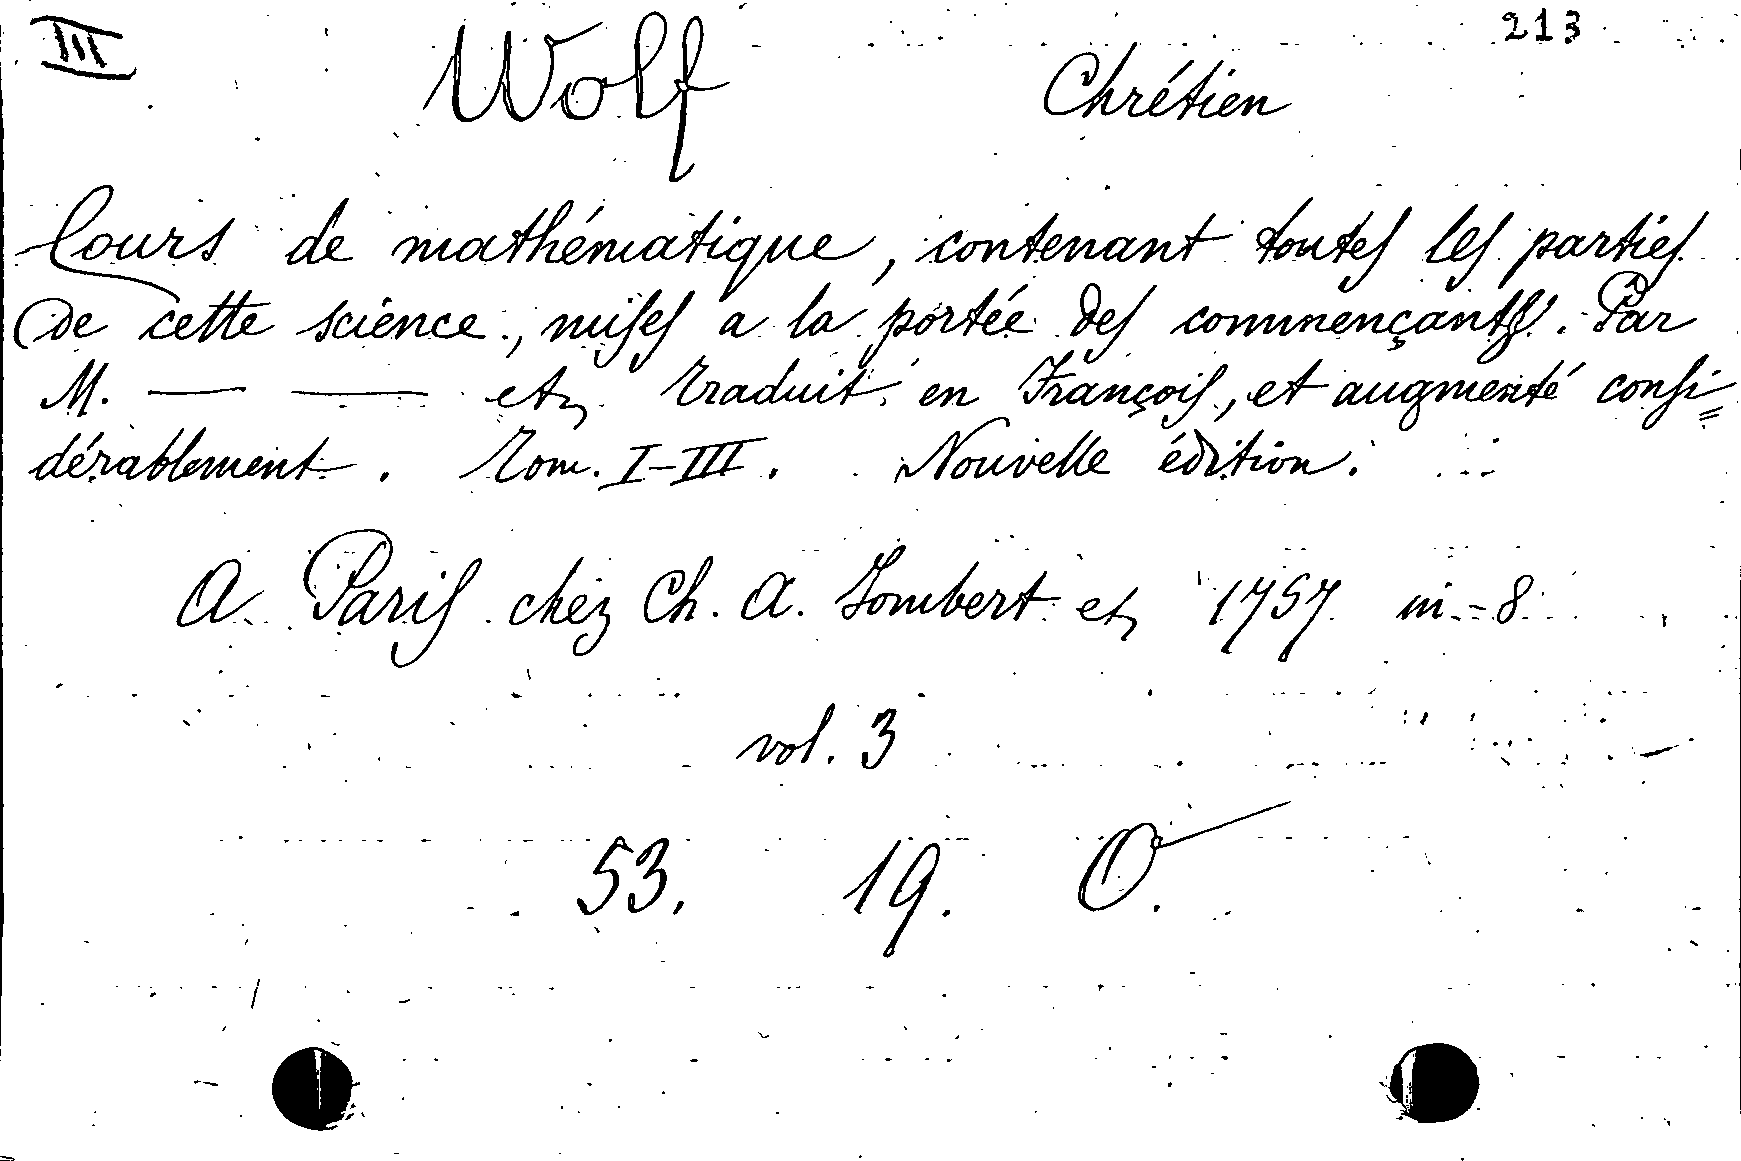 III
213
Wolf Chrétien
Cours de mathématique, contenant toutes les parties
de cette science, mises a la portée des commençants. Par
M. — — etc. traduit en François, et augmenté consi=
dérablement. Tom. I-III. Nouvelle édition.
A Paris chez Ch. A. Jombert etc. 1757 in-8
vol. 3
53. 19. O.